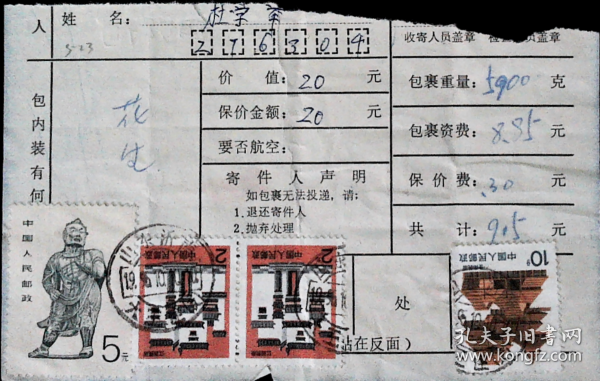 人
姓 名：
5-23
276304
收寄人员盖章 盖章
价 值：20 元
保价金额：20 元
要否航空：
包裹重量：5900 克
包裹资费：8.85 元
保价费：.30 元
共 计：9.15 元
包内装有何
花生
寄件人声明
如包裹无法投递，请：
1.退还寄件人
2.抛弃处理
处
贴在反面）
中国人民邮政
5元
2
中国人民邮政
江苏民居
2
中国人民邮政
江苏民居
10分
中国人民邮政
孔夫子旧书网
www.kongfz.com